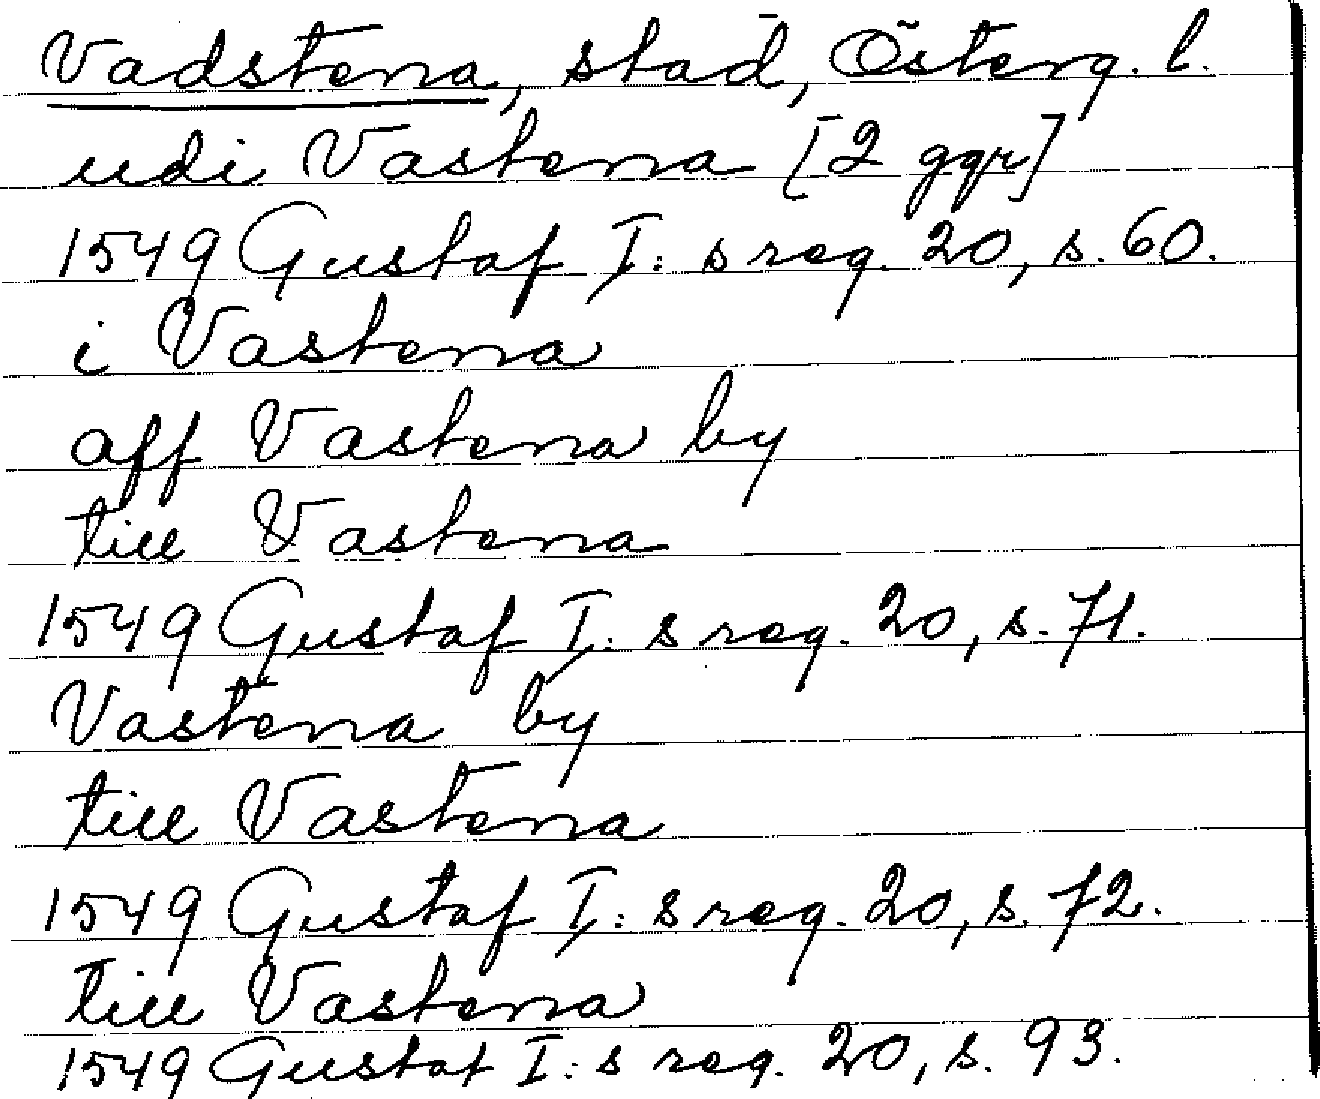 Vadstena, stad, Österg. l.
udi Vastena [2 ggr]
1549 Gustaf I: s reg. 20, s. 60.
i Vastena
aff Vastena by
till Vastena
1549 Gustaf I: s reg. 20, s. 71.
Vastena by
till Vastena
1549 Gustaf I: s reg. 20, s. 72.
till Vastena
1549 Gustaf I: s reg. 20, s. 93.